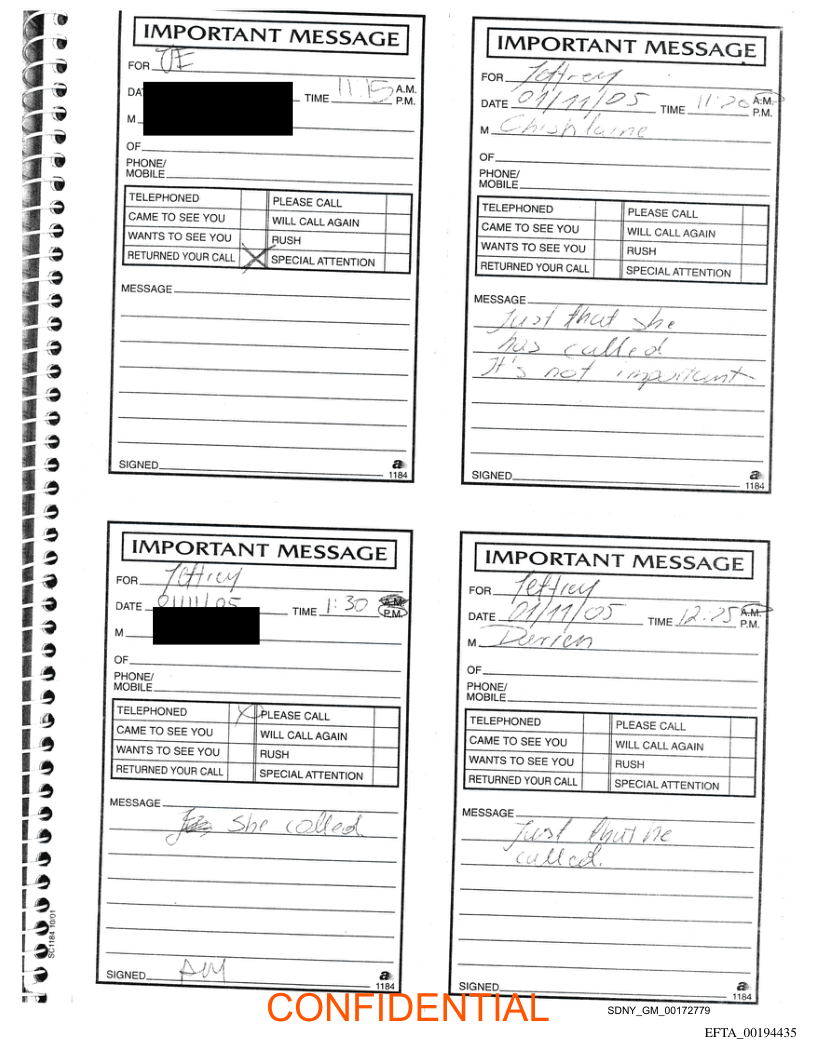 IMPORTANT MESSAGE
FOR JE
DA
TIME 11:15 A.M.
P.M.
M
OF
PHONE/
MOBILE
TELEPHONED PLEASE CALL
CAME TO SEE YOU WILL CALL AGAIN
WANTS TO SEE YOU RUSH
RETURNED YOUR CALL X SPECIAL ATTENTION
MESSAGE
SIGNED
a
1184
IMPORTANT MESSAGE
FOR Jeffrey
DATE 01/11/05 TIME 11:20 A.M.
P.M.
M Chishlaine
OF
PHONE/
MOBILE
TELEPHONED PLEASE CALL
CAME TO SEE YOU WILL CALL AGAIN
WANTS TO SEE YOU RUSH
RETURNED YOUR CALL SPECIAL ATTENTION
MESSAGE
Just that she
has called
It's not important
SIGNED
a
1184
IMPORTANT MESSAGE
FOR Jeffrey
DATE 01/11/05 TIME 1:30 A.M.
P.M.
M
OF
PHONE/
MOBILE
TELEPHONED X PLEASE CALL
CAME TO SEE YOU WILL CALL AGAIN
WANTS TO SEE YOU RUSH
RETURNED YOUR CALL SPECIAL ATTENTION
MESSAGE
She called
SIGNED AM
a
1184
IMPORTANT MESSAGE
FOR Jeffrey
DATE 01/11/05 TIME 12:25 A.M.
P.M.
M Darren
OF
PHONE/
MOBILE
TELEPHONED PLEASE CALL
CAME TO SEE YOU WILL CALL AGAIN
WANTS TO SEE YOU RUSH
RETURNED YOUR CALL SPECIAL ATTENTION
MESSAGE
Just that he
called.
SIGNED
a
1184
SC1184 10/01
CONFIDENTIAL
SDNY_GM_00172779
EFTA_00194435